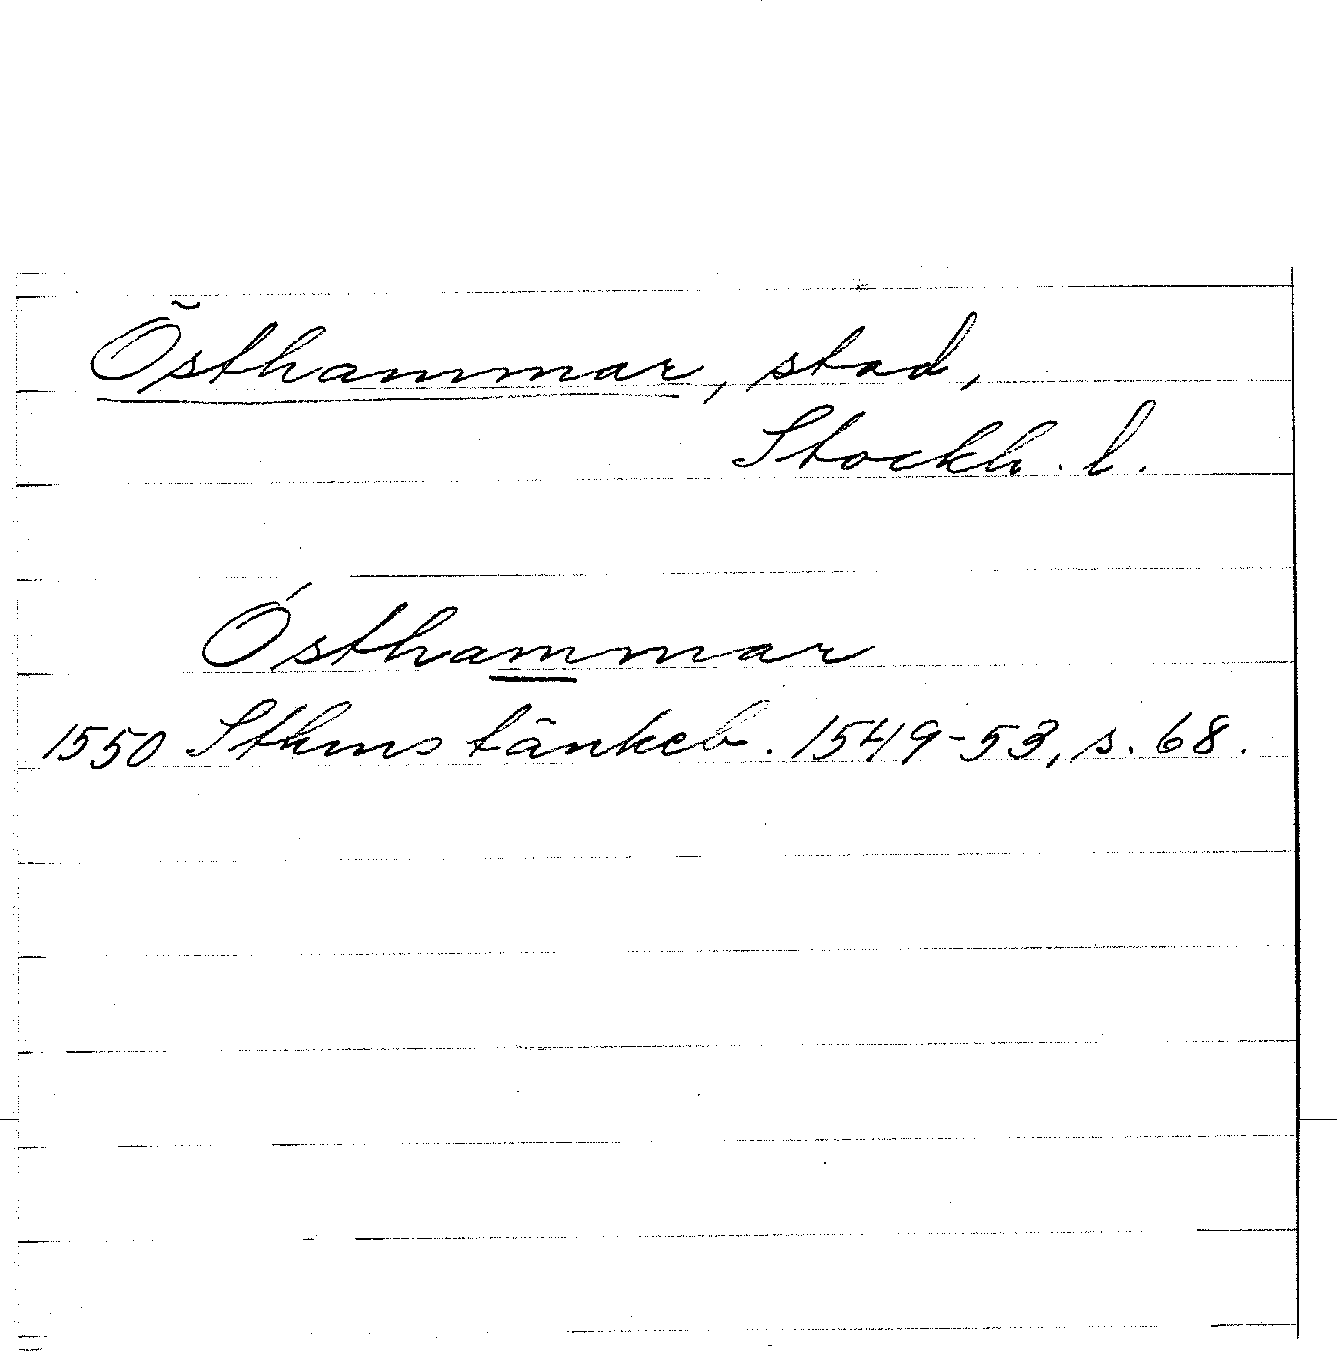 Östhammar, stad,
Stockh. l.
Ósthammar
1550 Sthms tänkeb. 1549-53, s. 68.